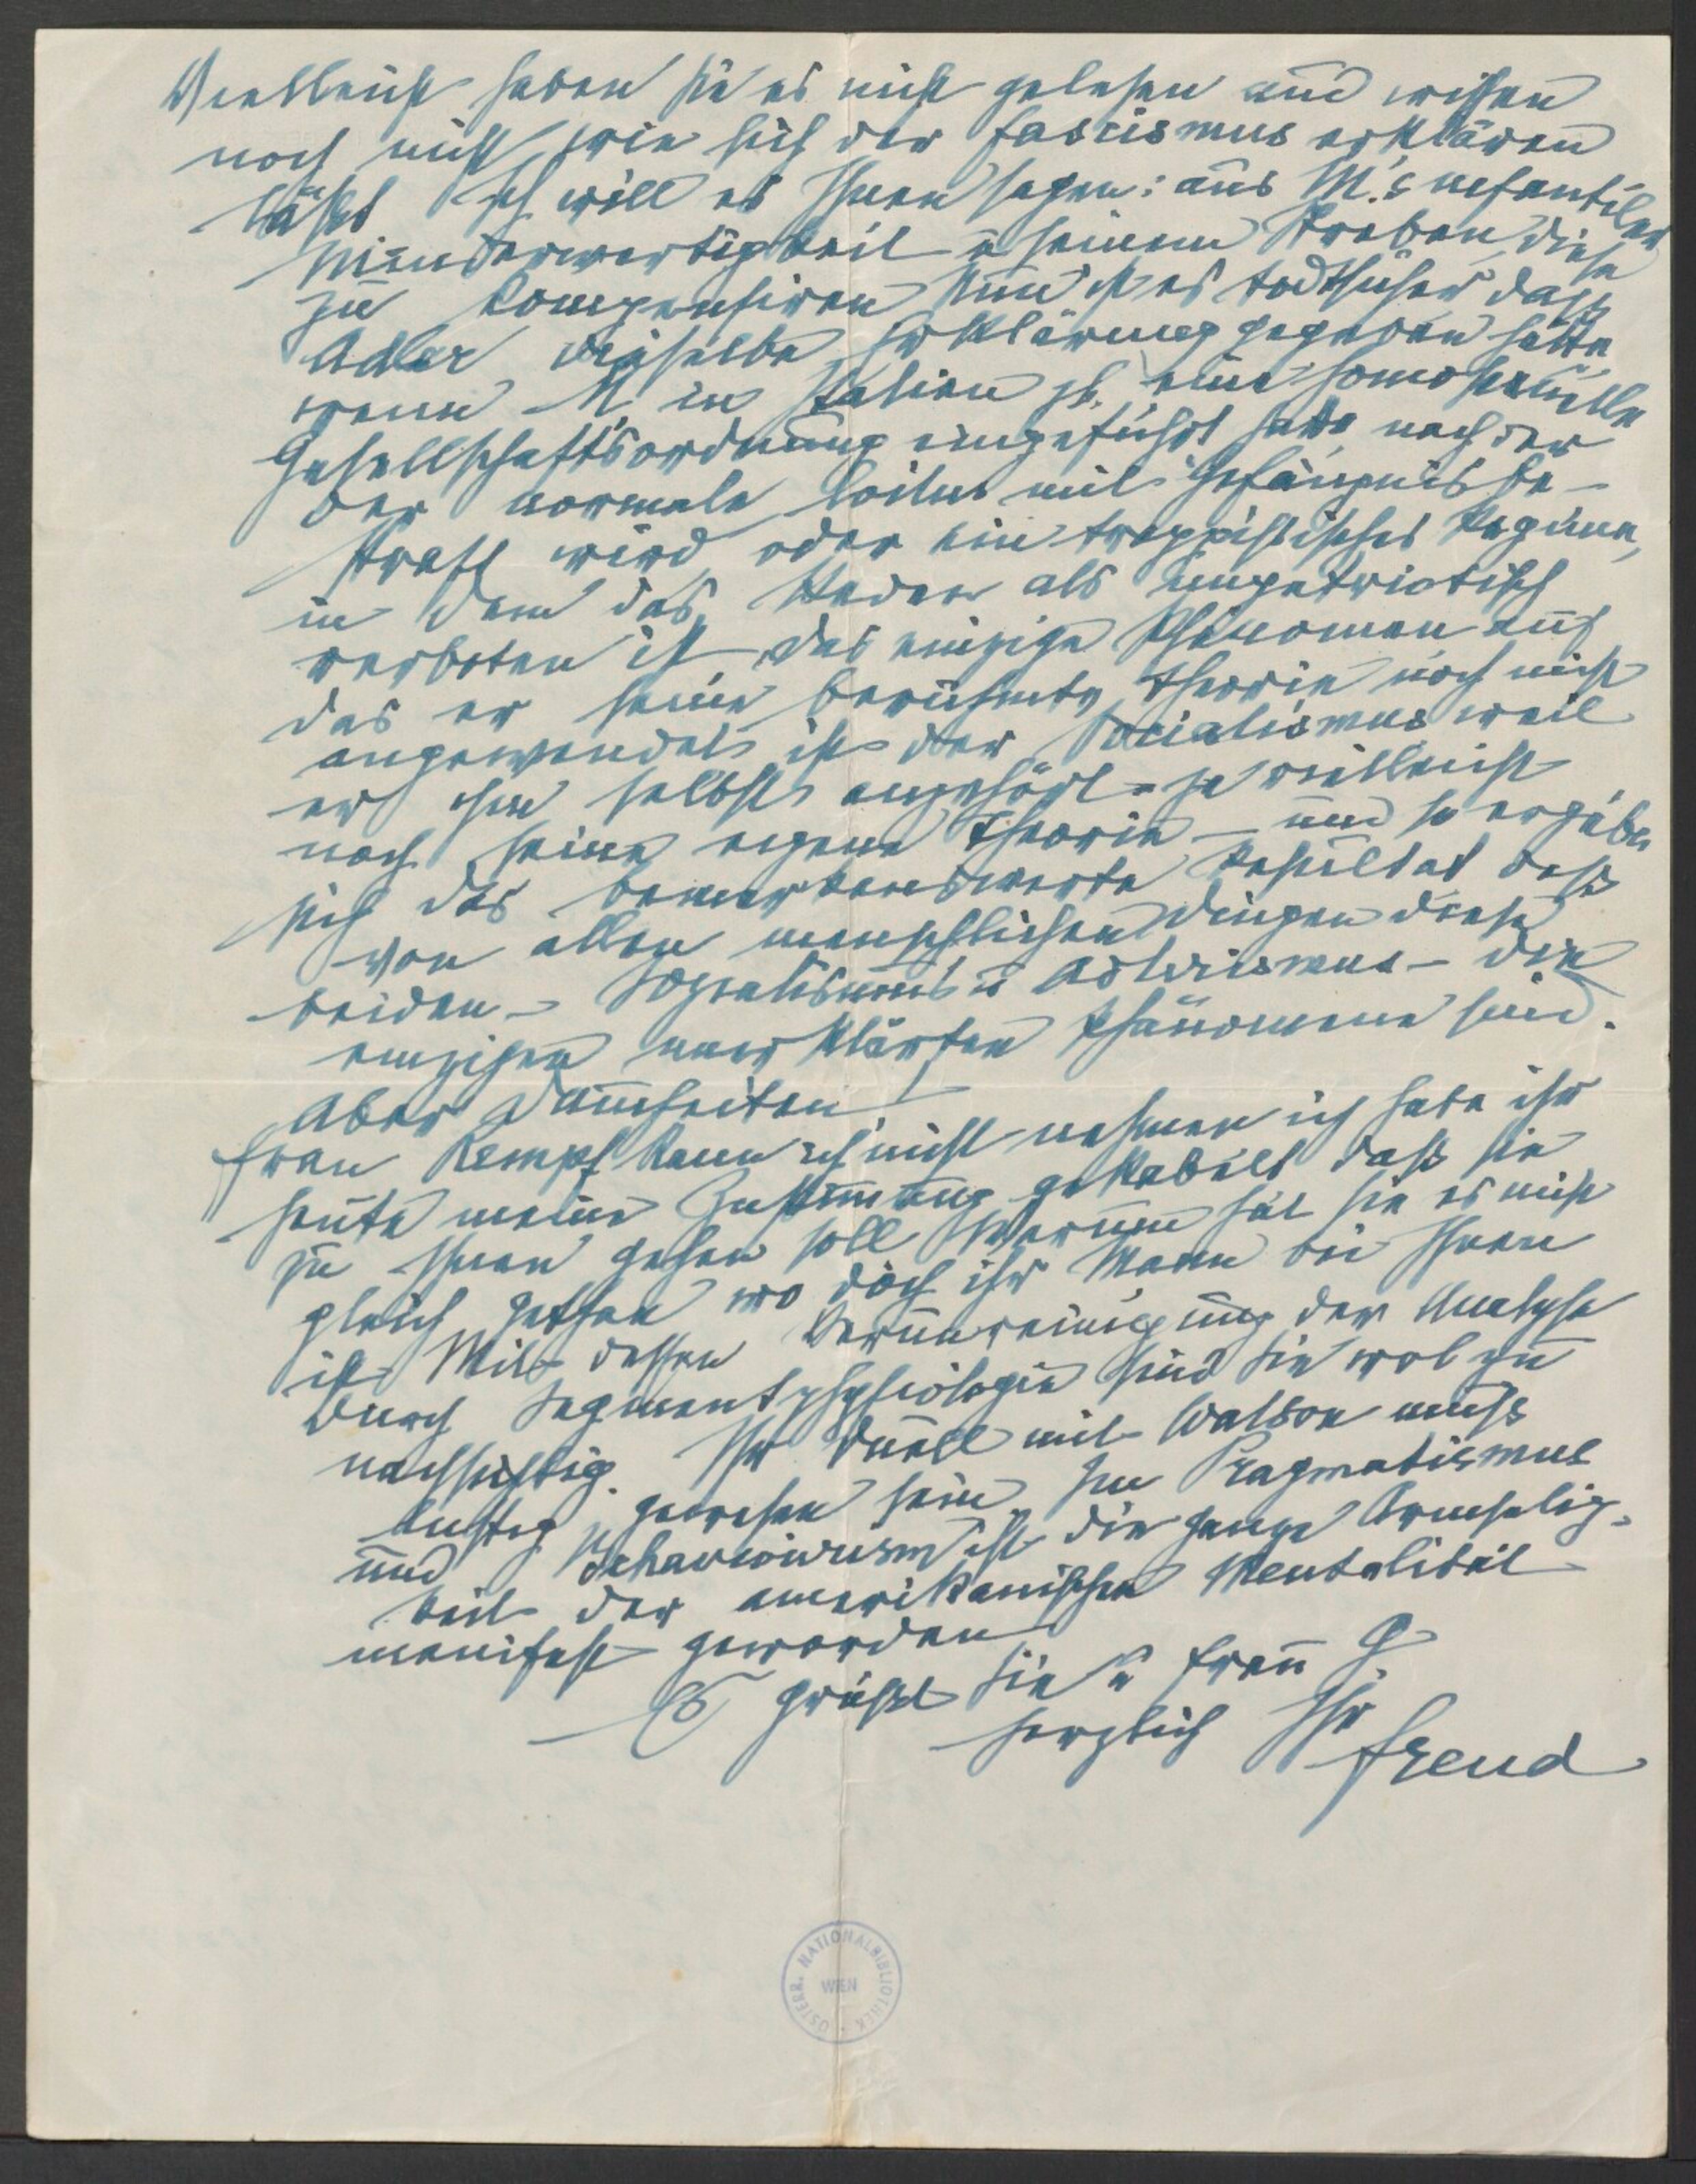 Vielleicht haben Sie es nicht gelesen und wissen
noch nicht, wie sich der Fascismus erklären
läßt. Ich will es Ihnen sagen: aus M.'s infantiler
Minderwertigkeit u seinem Streben, diese
zu kompensiren. Nun ist es todtsicher daß
Adler dieselbe Erklärung gegeben hätte
wenn M. in Italien zb. eine homosexuelle
Gesellschaftsordnung eingeführt hätte nach der
der normale Coitus mit Gefängnis be-
straft wird, oder ein trappistisches Regime,
in dem das Reden als unpatriotisch
verboten ist. Das einzige Phänomen auf
das er seine berühmte Theorie noch nicht
angewendet ist der Socialismus weil
er ihm selbst angehört – ja vielleicht
noch seine eigene Theorie – und so ergäbe
sich das bemerkenswerte Resultat daß
von allen menschlichen Dingen diese
beiden – Sozialismus u Adlerismus – die
einzigen unerklärten Phänomene sind.
Aber Dummheiten!
Frau Kempf kann ich nicht nehmen ich habe ihr
heute meine Zustimmung gekabelt daß sie
zu Ihnen gehen soll. Warum hat sie es nicht
gleich gethan wo doch ihr Mann bei Ihnen
ist. Mit dessen Verunreinigung der Analyse
durch Segmentphysiologie sind Sie wol zu
nachsichtig. Ihr Duell mit Watson muß
lustig gewesen sein. Im Pragmatismus
und Behaviourism ist die ganze Armselig-
keit der amerikanischen Mentalität
manifest geworden.
Es grüßt Sie u Frau G.
herzlich Ihr
Freud
ÖSTERR. NATIONALBIBLIOTHEK
WIEN